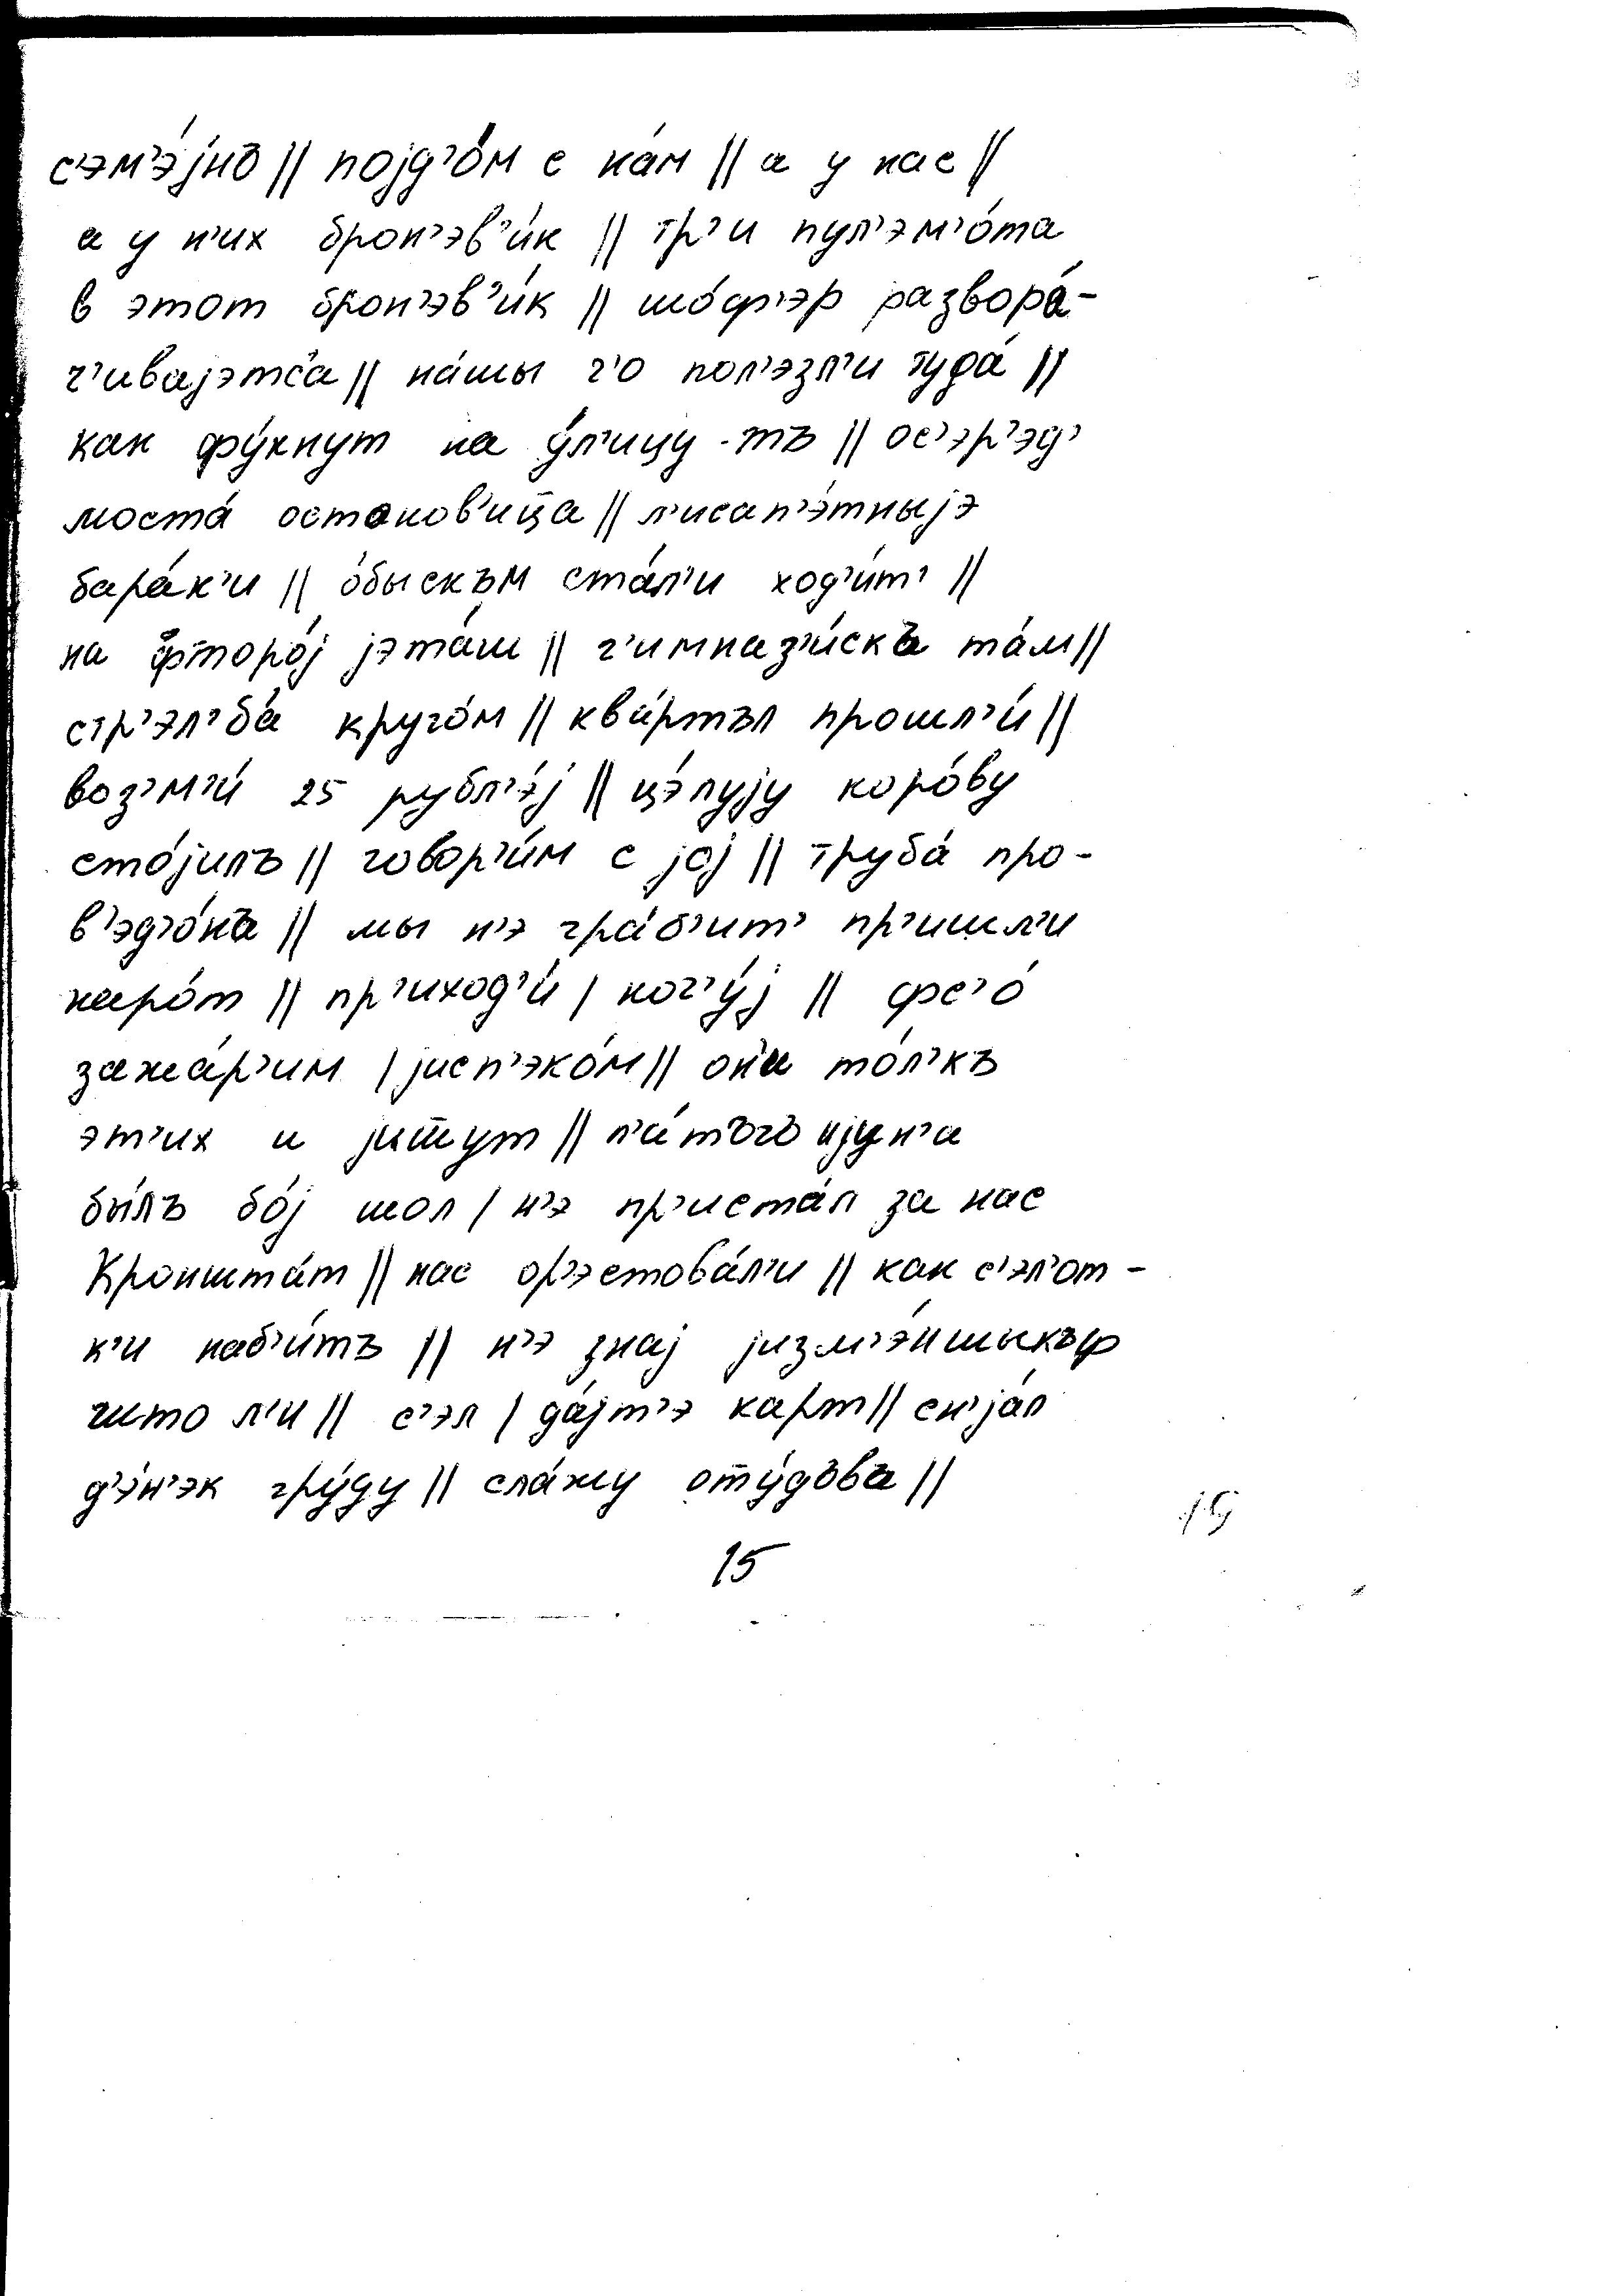 с'эм'э́јнъ || појд'о́м с на́м || а у нас ||
а у н'их брон'эв'и́к || тр'и пул'эм'о́та
в этот брон'эв'и́к || шо́ф'эр развора́-
ч'ивајэтс'а || на́шы ч'о пол'эзл'и туда́ ||
как фу́кнут на у́л'ицу-тъ || ос'эр'эд'
моста́ останов'ица || л'исап'э́тныјэ
бара́к'и || о́быскъм ста́л'и ход'и́т' ||
на фторо́ј јэта́ш || г'имназ'и́скъ та́м ||
стр'эл'ба́ круго́м || ква́ртъл прошл'и́ ||
воз'м'и́ 25 рубл'э́ј || цэ́лују коро́ву
сто́јилъ || говор'и́м с јој || труба́ про-
в'эд'о́на || мы н'э гра́б'ит' пр'ишл'и
наро́т || пр'иход'и́ | ноч'у́ј || фс'о́
зажа́р'им | јисп'эко́м || он'и то́л'къ
эт'их и ј͟ишут || п'а́тъгъ ијун'а
бы́лъ бо́ј шол | н'э пр'иста́л за нас
Кроншта́т || нас ор'эстова́л'и || как с'эл'от-
к'и наб'и́тъ || н'э знај јизм'э́ншыкъф
што л'и || с'эл | да́јт'э карт || сн'јал
д'э́н'эк гру́ду || сла́жу оту́дъва ||
15